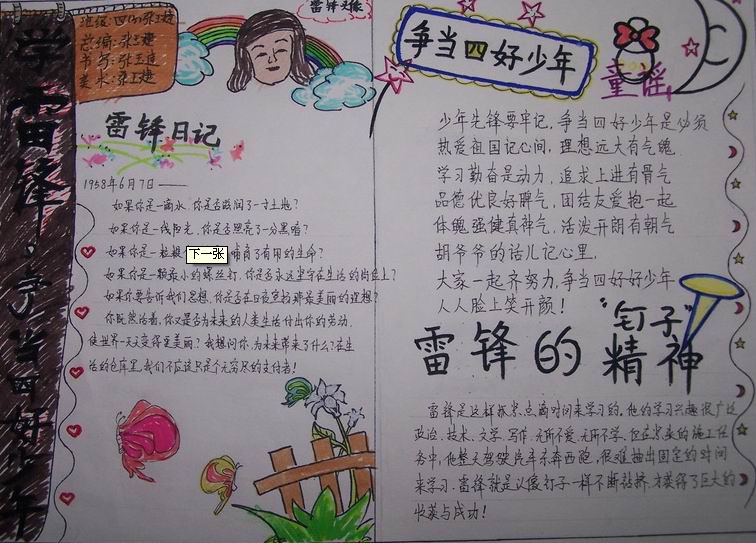 学雷锋，争当四好少年
班级:四(1)张
总编:张
书写:张
美术:张
雷锋日记
1958年6月7日——
如果你是一滴水,你是否滋润了一寸土地?
如果你是一线阳光,你是否照亮了一分黑暗?
如果你是一粒粮 哺育了有用的生命?
下一张
如果你是一颗最小的螺丝钉,你是否永远坚守在生活的岗位上?
如果你要告诉我们思想,你是否在日夜宣扬那最美丽的理想?
你既然活着,你又是否为未来的人类生活付出你的劳动,
使世界一天天变得更美丽?我想问你,为未来带来了什么?在生
活的仓库里,我们不应该只是个无穷尽的支付者!
争当四好少年
童谣
少年先锋要牢记,争当四好少年是必须
热爱祖国记心间,理想远大有气魄
学习勤奋是动力,追求上进有骨气
品德优良好脾气,团结友爱抱一起
体魄强健真神气,活泼开朗有朝气
胡爷爷的话儿记心里,
大家一起齐努力,争当四好好少年
人人脸上笑开颜!
雷锋的“钉子”精神
雷锋是这样挤出点滴时间来学习的,他的学习兴趣很广泛
政治、技术、文学、写作,无所不爱,无所不学,但在紧张的施工任
务中,他整天驾驶汽车东奔西跑,很难抽出固定的时间
来学习.雷锋就是以像钉子一样不断钻挤,才获得了巨大的
收获与成功!